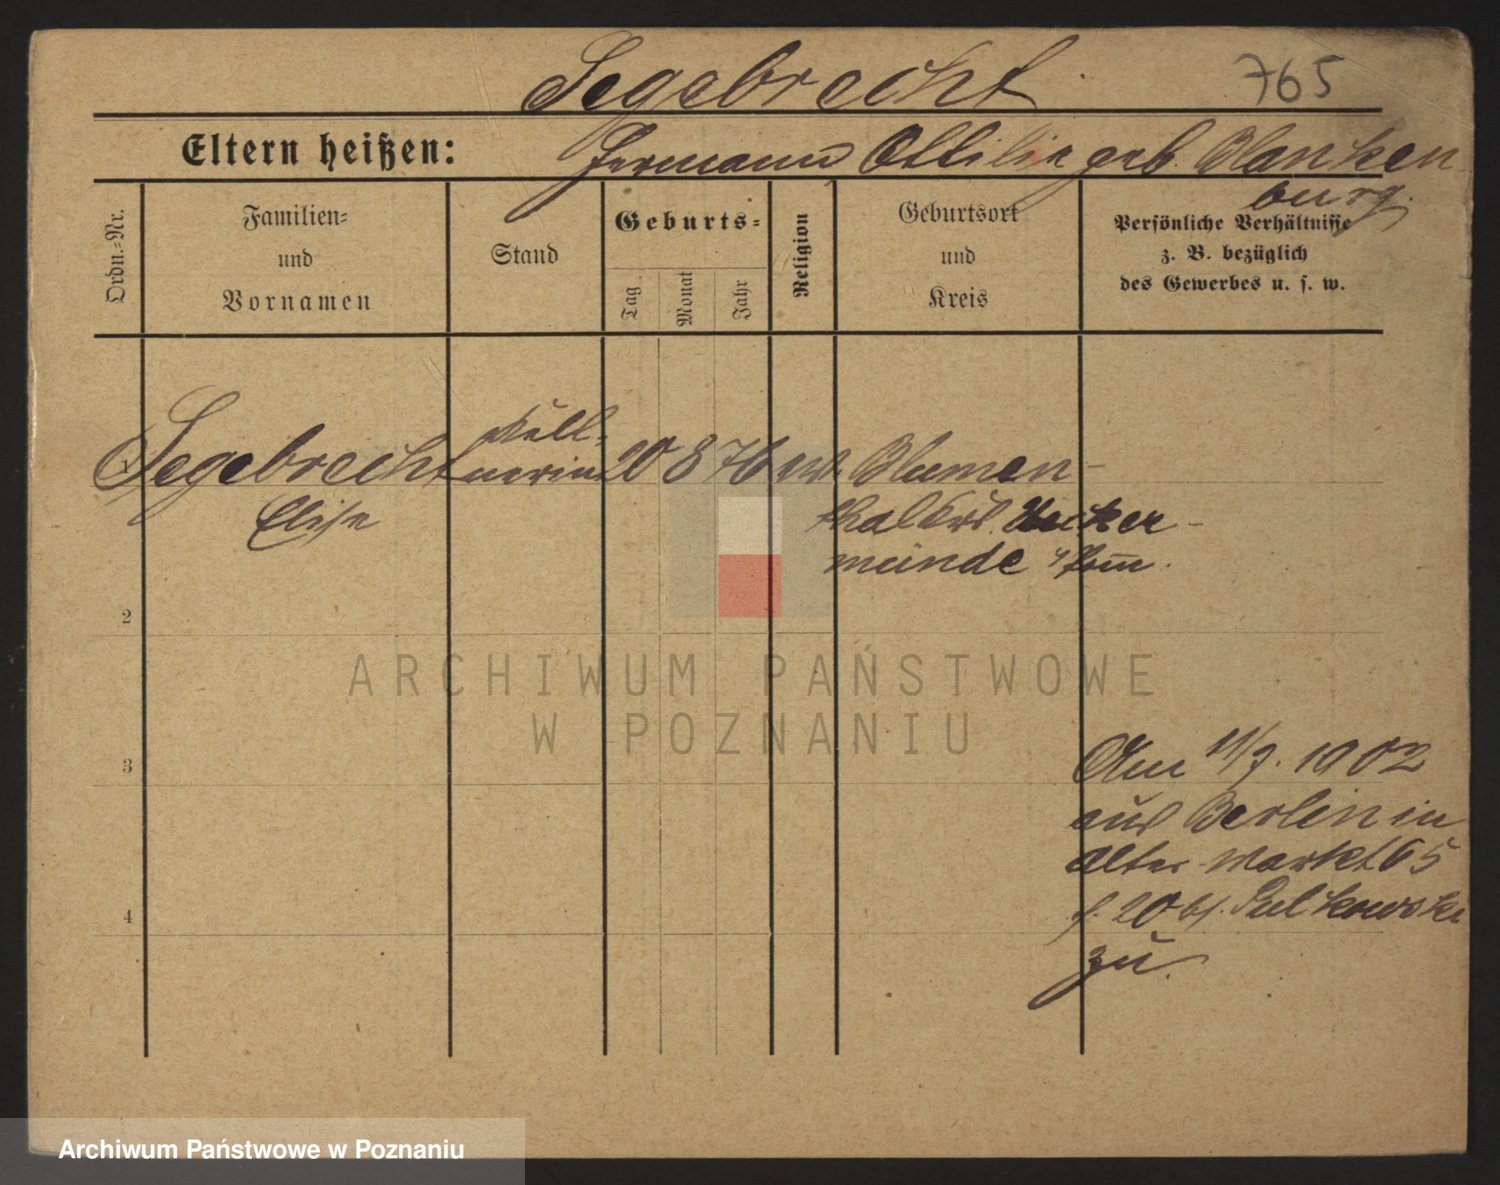 Segebrecht
765
Eltern heißen: Hermann Ottilie geb. Blanken
burg.
Ordn.-Nr.
Familien-
und
Vornamen
Stand
Geburts-
Tag
Monat
Jahr
Religion
Geburtsort
und
Kreis
Persönliche Verhältnisse
z. B. bezüglich
des Gewerbes u. s. w.
Kell-
Segebrecht nerin 20 8 76 ev. Blumen-
Elise
thal Krs. Uecker-
münde Pom.
2
ARCHIWUM PAŃSTWOWE
W POZNANIU
3
Am 11/7. 1902
aus Berlin in
Alter Markt 65
zu
4
Archiwum Państwowe w Poznaniu